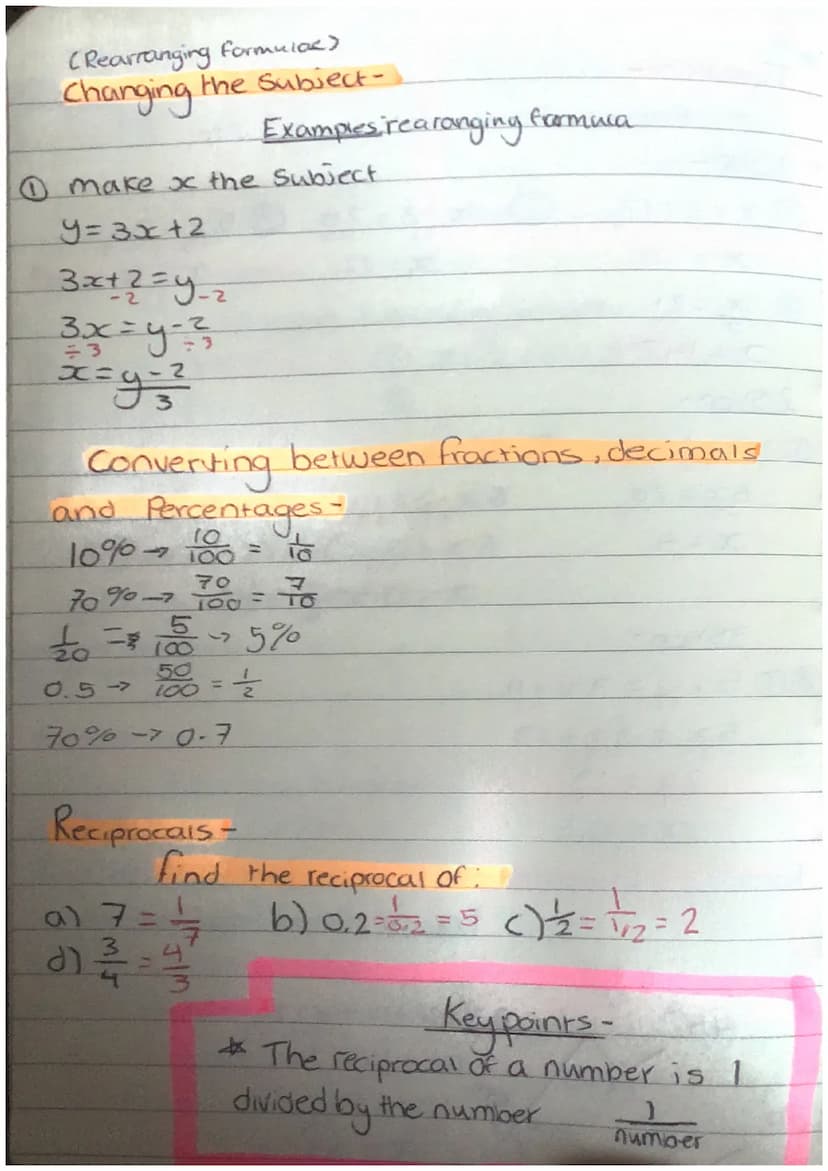 (Rearranging formulae)
Changing the Subject-
Examples rearanging formula
① make x the Subject
y = 3x + 2
3x + 2 = y
-2 -2
3x = y - 2
÷3 ÷3
x = y - 2 / 3
Converting between fractions, decimals
and Percentages-
10% → 10/100 = 1/10
70% → 70/100 = 7/10
1/20 = 5/100 → 5%
0.5 → 50/100 = 1/2
70% → 0.7
Reciprocals-
find the reciprocal of:
a) 7 = 1/7 b) 0.2 = 1/0.2 = 5 c) 1/2 = 1/1/2 = 2
d) 3/4 = 4/3
Key points-
* The reciprocal of a number is 1
divided by the number 1/number